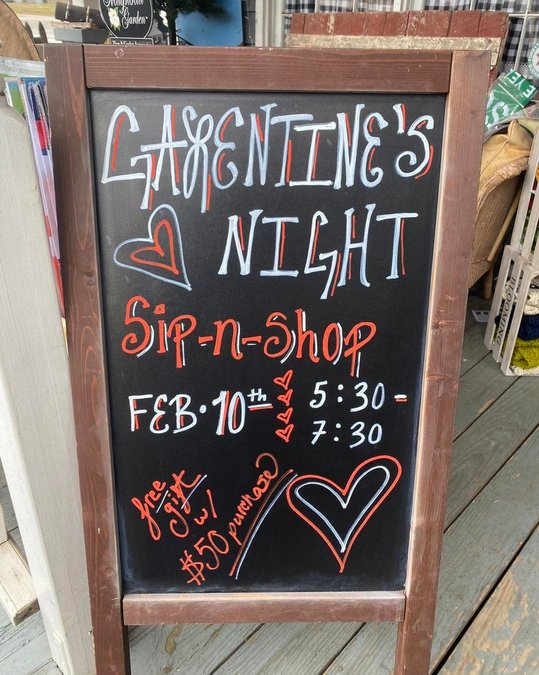 GALENTINE'S
NIGHT
Sip-n-Shop
FEB. 10th 5:30 -
7:30
free
gift
w/
$50 purchase